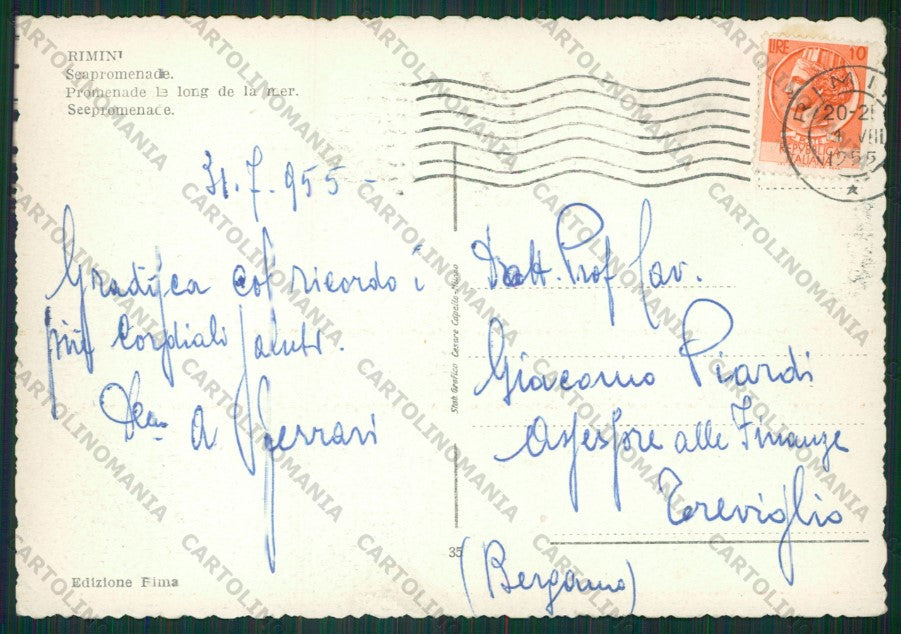 RIMINI
Seapromenade.
Promenade le long de la mer.
Seepromenade.
LIRE 10
REPVBBLICA
ITALIANA
RIMINI
20-21
VIII
1955
31.7.955 -
Gradisca col ricordo i
più cordiali saluti.
A Ferrari
Dott. Prof Cav.
Giacomo Piardi
Assessore alle Finanze
Treviglio
(Bergamo)
Stab. Grafico Cesare Capello - Milano
35
Edizione Fima
CARTOLINOMANIA